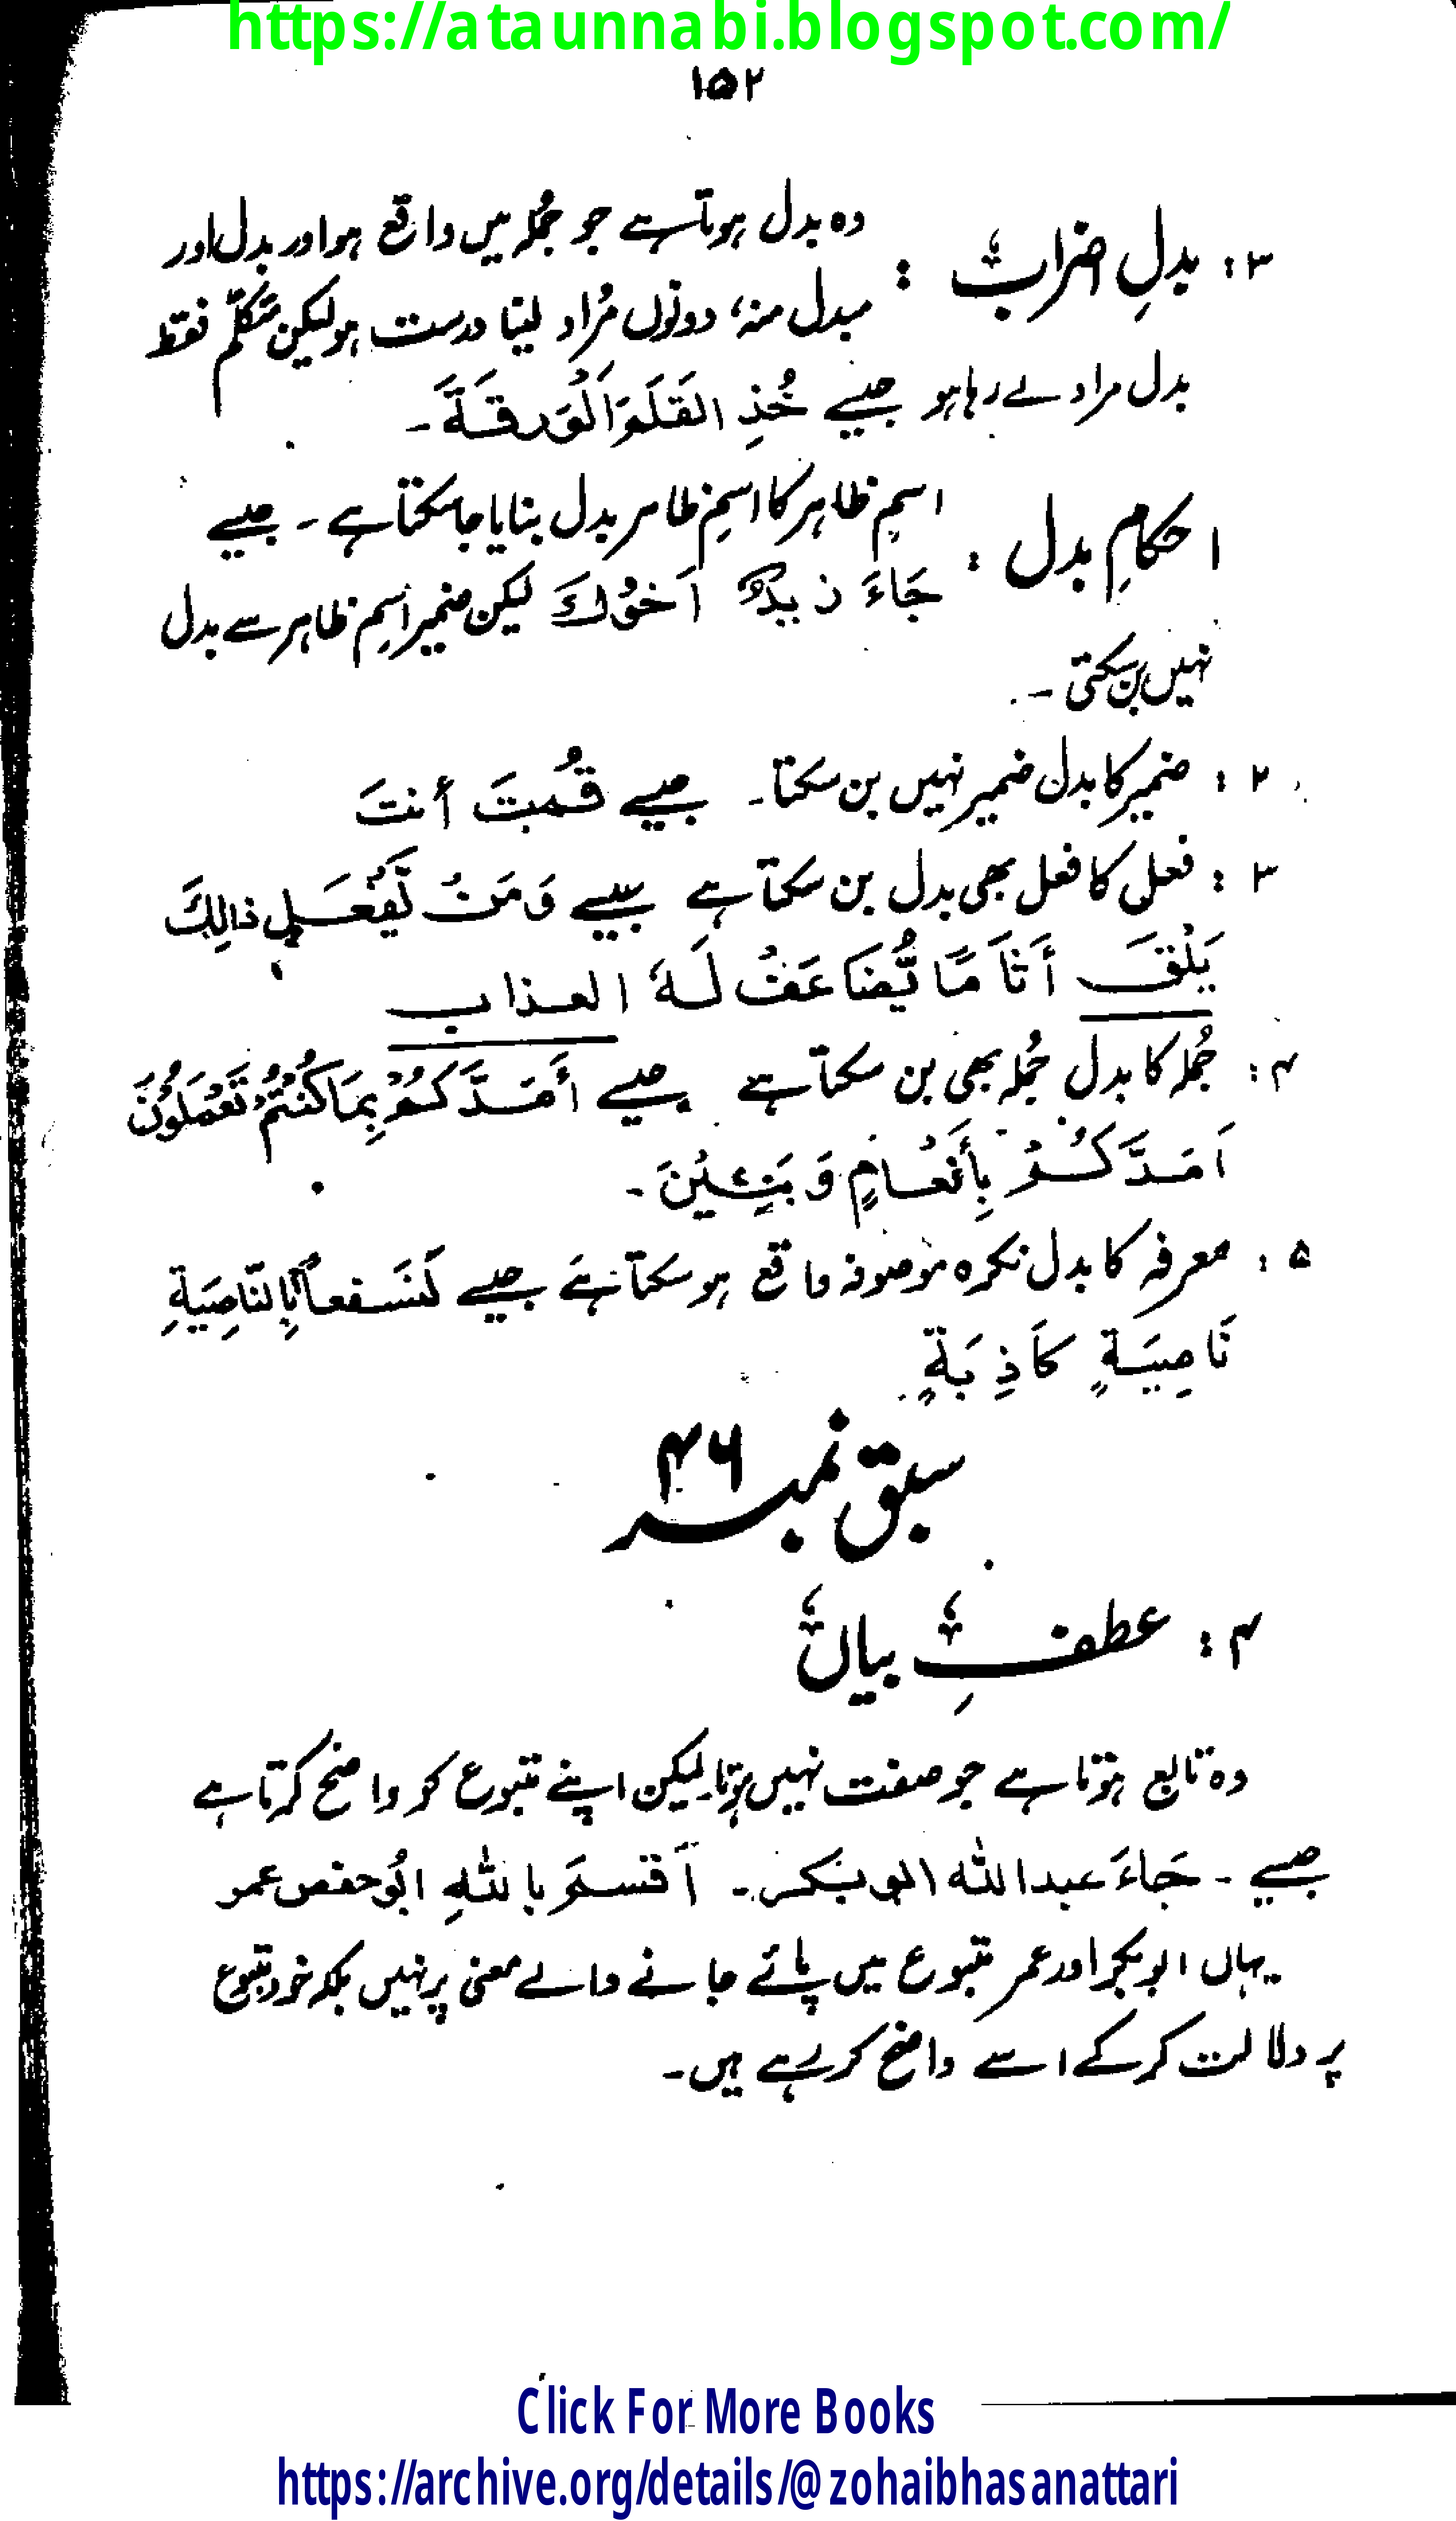 https://ataunnabi.blogspot.com/
۱۵۲
۳: بدلِ اضراب : وہ بدل ہوتا ہے جو جملہ میں واقع ہو اور بدل اور
مبدل منہ، دونوں مُراد لینا درست ہو لیکن متکلّم فقط
بدل مراد لے رہا ہو جیسے خُذِ القَلَمَ اَلْوَرقَةَ ۔
احکامِ بدل : اسمِ ظاہر کا اسمِ ظاہر بدل بنایا جا سکتا ہے ۔ جیسے
جَاءَ زیدٌ اَخُوْكَ لیکن ضمیر اسمِ ظاہر سے بدل
نہیں بن سکتی ۔
۲ : ضمیر کا بدل ضمیر نہیں بن سکتا ۔ جیسے قُمتَ أنتَ
۳ : فعل کا فعل بھی بدل بن سکتا ہے جیسے وَمَنْ يَّفْعَلْ ذالِكَ
يَلْقَ أَثَامًا يُّضَاعَفْ لَهُ العذاب
۴ : جُملہ کا بدل جُملہ بھی بن سکتا ہے جیسے أَمَدَّكُمْ بِمَا كُنْتُمْ تَعْمَلُوْنَ
اَمَدَّكُمْ بِأَنْعَامٍ وَبَنِيْنَ ۔
۵ : معرفہ کا بدل نکرہ موصوفہ واقع ہو سکتا ہے جیسے لَنَسْفعاً بِالنَّاصِيَةِ
نَاصِيَةٍ كَاذِبَةٍ
سبق نمبر ۴۶
۴ : عطفِ بیان
وہ تابع ہوتا ہے جو صفت نہیں ہوتا۔ لیکن اپنے متبوع کو واضح کرتا ہے
جیسے ۔ جَاءَ عبد اللہ ابو بکر ۔ اَقسَمَ باللہِ ابُو حفص عمر
یہاں ابوبکر اور عمر متبوع میں پائے جانے والے معنی پر نہیں بلکہ خود متبوع
پر دلالت کر کے اسے واضح کر رہے ہیں ۔
Click For More Books
https://archive.org/details/@zohaibhasanattari